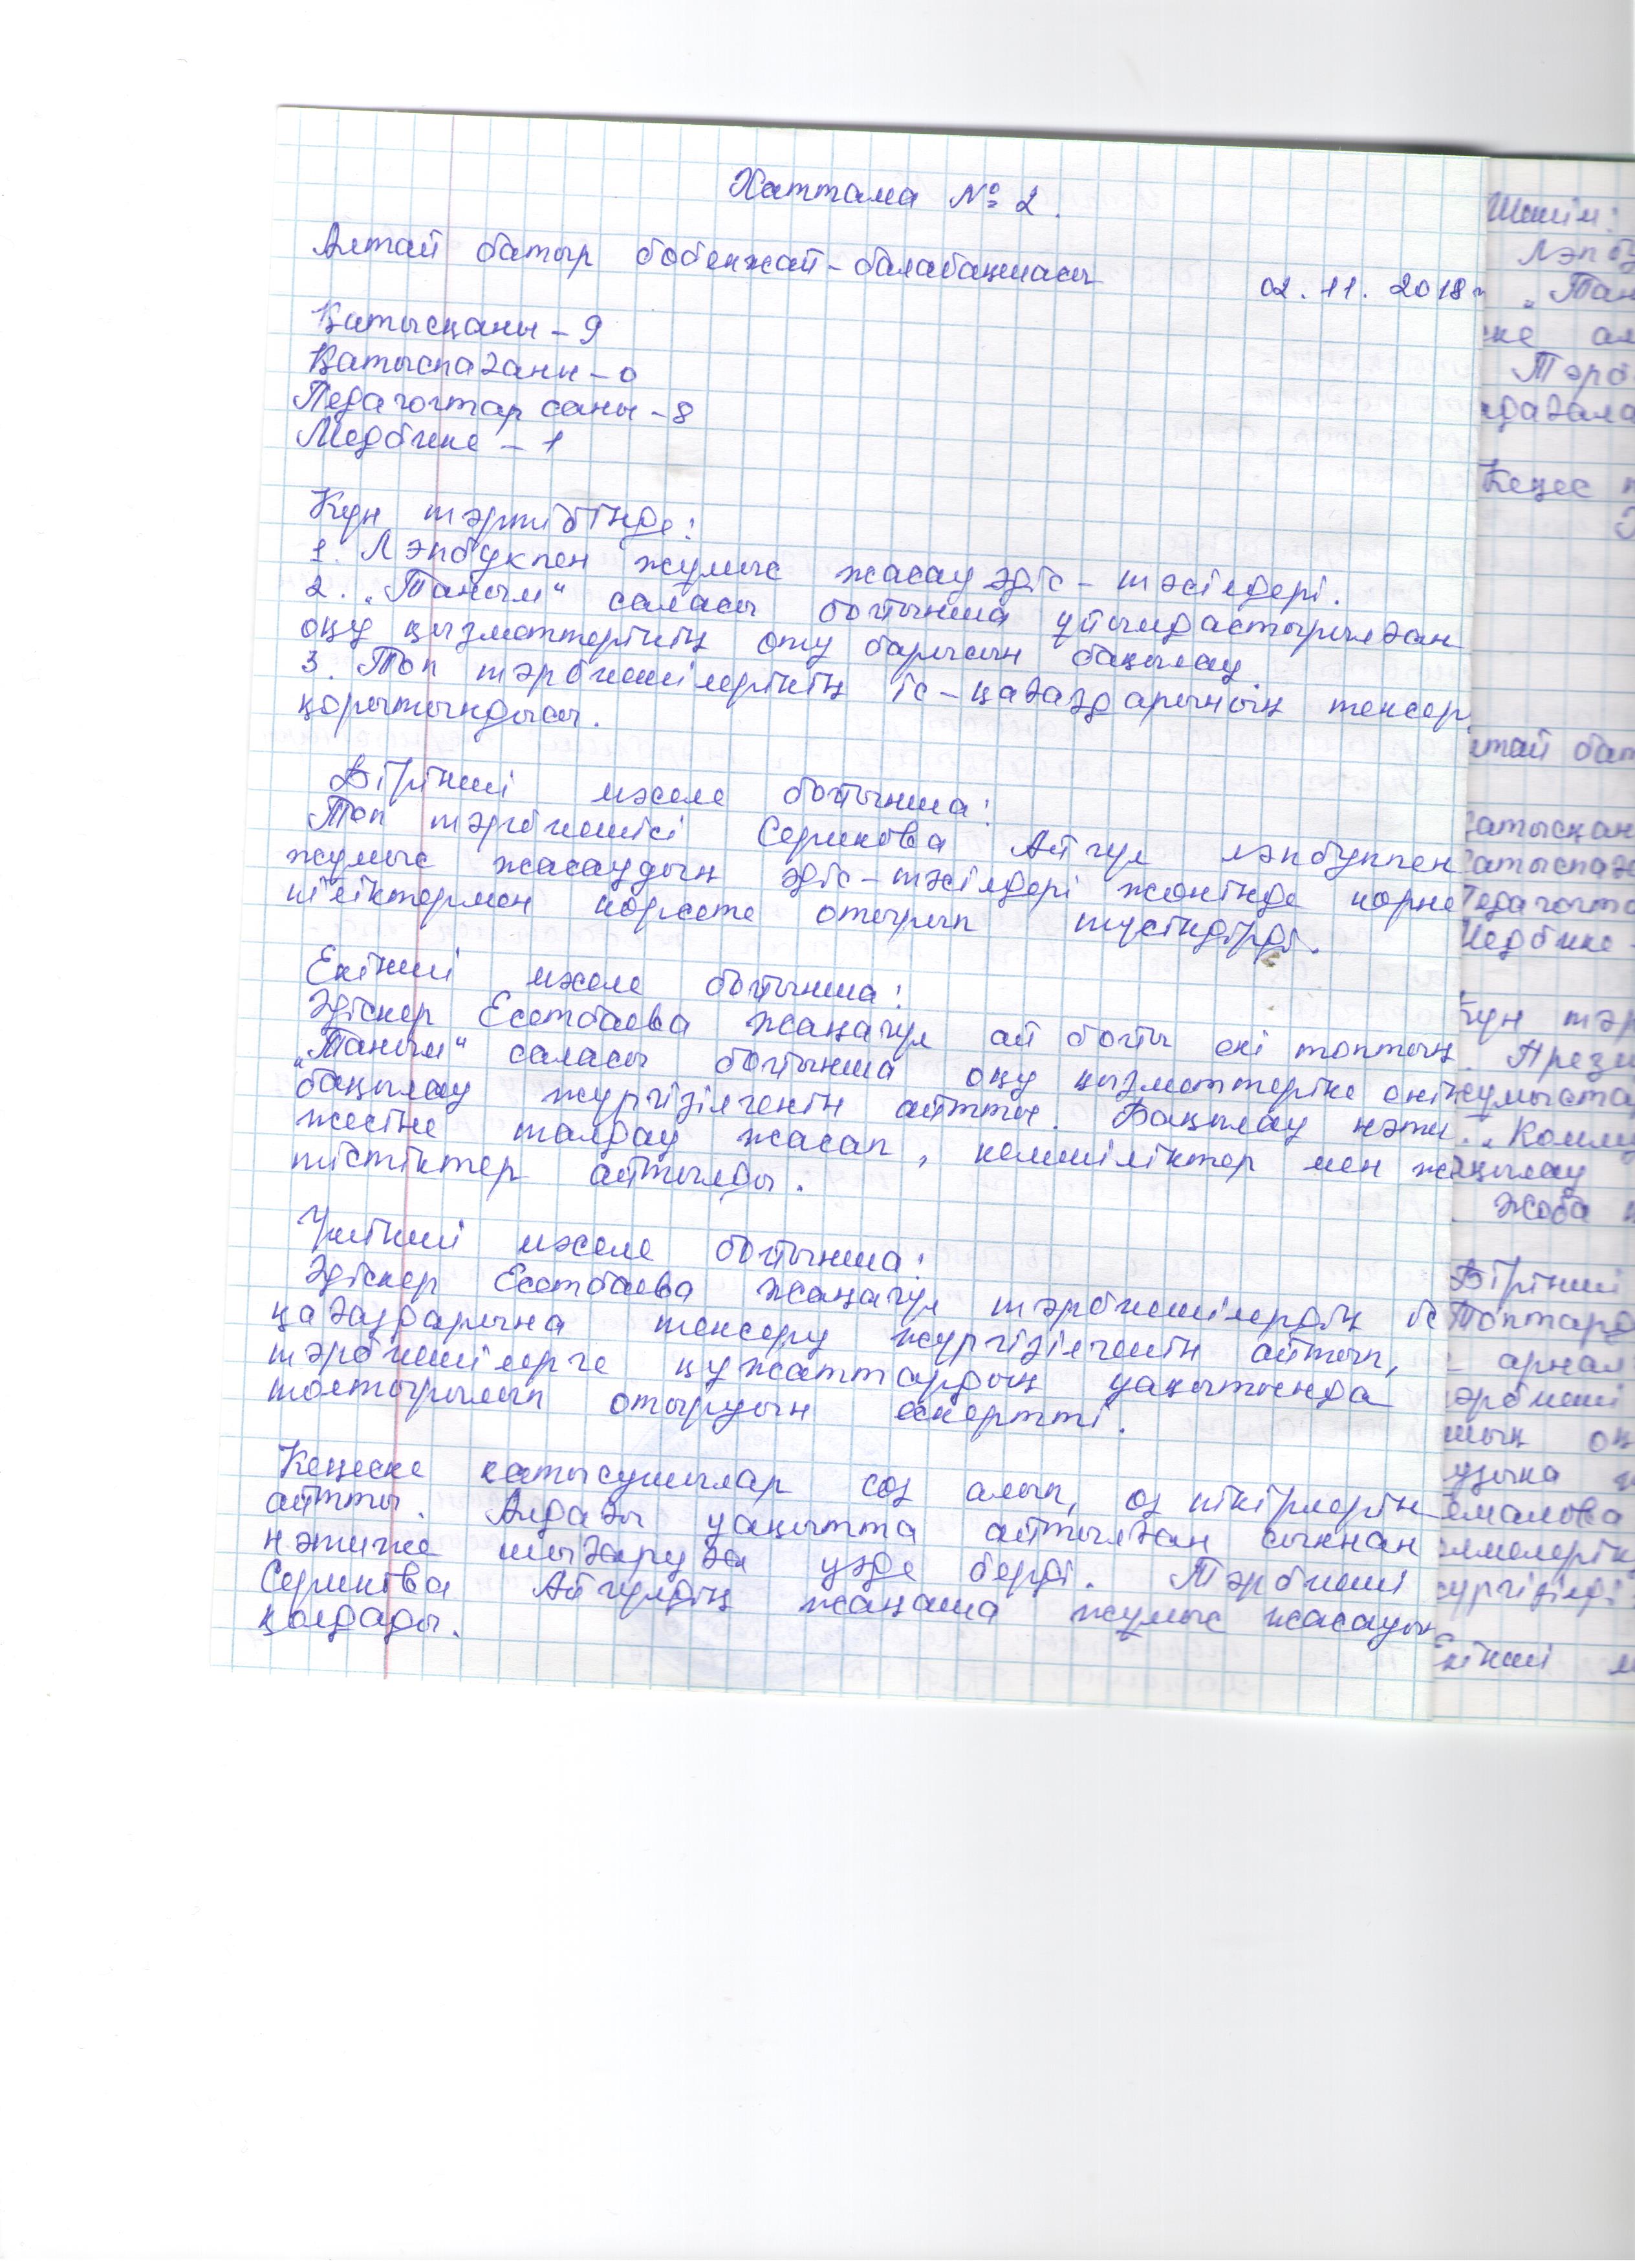 Хаттама № 2.
Алтай батыр бөбекжай-балабақшасы
02.11.2018ж
Қатысқаны - 9
Қатыспағаны - 0
Педагогтар саны - 8
Медбике - 1
Күн тәртібінде:
1. Лэпбукпен жұмыс жасау әдіс-тәсілдері.
2. „Таным" саласы бойынша ұйымдастырылған
оқу қызметтерінің өту барысын бақылау.
3. Топ тәрбиешілерінің іс-қағаздарының тексер
қорытындысы.
Бірінші мәселе бойынша:
Топ тәрбиешісі Серикова Айгүл лэпбукпен
жұмыс жасаудың әдіс-тәсілдері жөнінде көрне
кіліктермен көрсете отырып түсіндірді.
Екінші мәселе бойынша:
Әдіскер Есетбаева Жаңагүл ай бойы екі топтың
„Таным" саласы бойынша оқу қызметтеріне енік
бақылау жүргізілгенін айтты. Бақылау нәти
жесіне талдау жасап, кемшіліктер мен же
тістіктер айтылды.
Үшінші мәселе бойынша:
Әдіскер Есетбаева Жаңагүл тәрбиешілердің іс
қағаздарына тексеру жүргізілгенін айтып,
тәрбиешілерге құжаттардың уақытында
толтырылып отыруын ескертті.
Кеңеске қатысушылар сөз алып, өз пікірлерін
айтты. Алдағы уақытта айтылған сыннан
нәтиже шығаруға уәде берді. Тәрбиеші
Серикова Айгүлдің жаңаша жұмыс жасауын
қолдады.
Шешім:
Кеңес
Күн тәр
бақылау
Жоба
Бірінші
Топтард
тәрбиеші
жүргізілді
Екінші